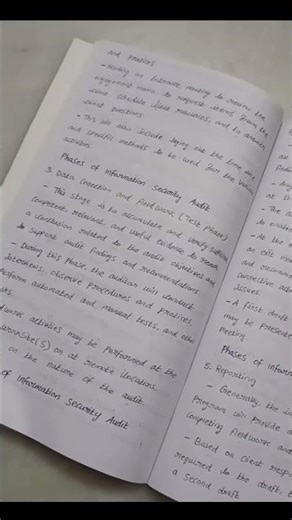 and practices
- Holding an Entrance meeting to review the
engagement memo to request items from the
client, schedule client resources, and to answer
client questions
- This will also include laying out the time line
and specific methods to be used for the various
activities
Phases of Information Security Audit
3. Data collection and fieldwork (Test Phase)
- This stage is to accumulate and verify sufficient
competent, relevant, and useful evidence to reach
a conclusion related to the audit objectives and
to support audit findings and recommendations
- During this phase, the auditor will conduct
Interviews, observe procedures and practices,
perform automated and manual tests, and other
tasks.
activities may be performed at the
worksite(s) or at remote locations,
on the nature of the audit
of Information Security Audit
- The
to
- At the
an exit
and
corrective
issues.
- A first draft
may be presente
meeting
Phases of Inform
5. Reporting
- Generally, the
program will provide a
completing fieldwork
- Based on client resp
required to the draft,
a second draft